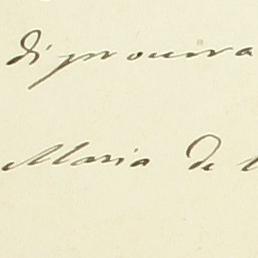 di procura
Maria de